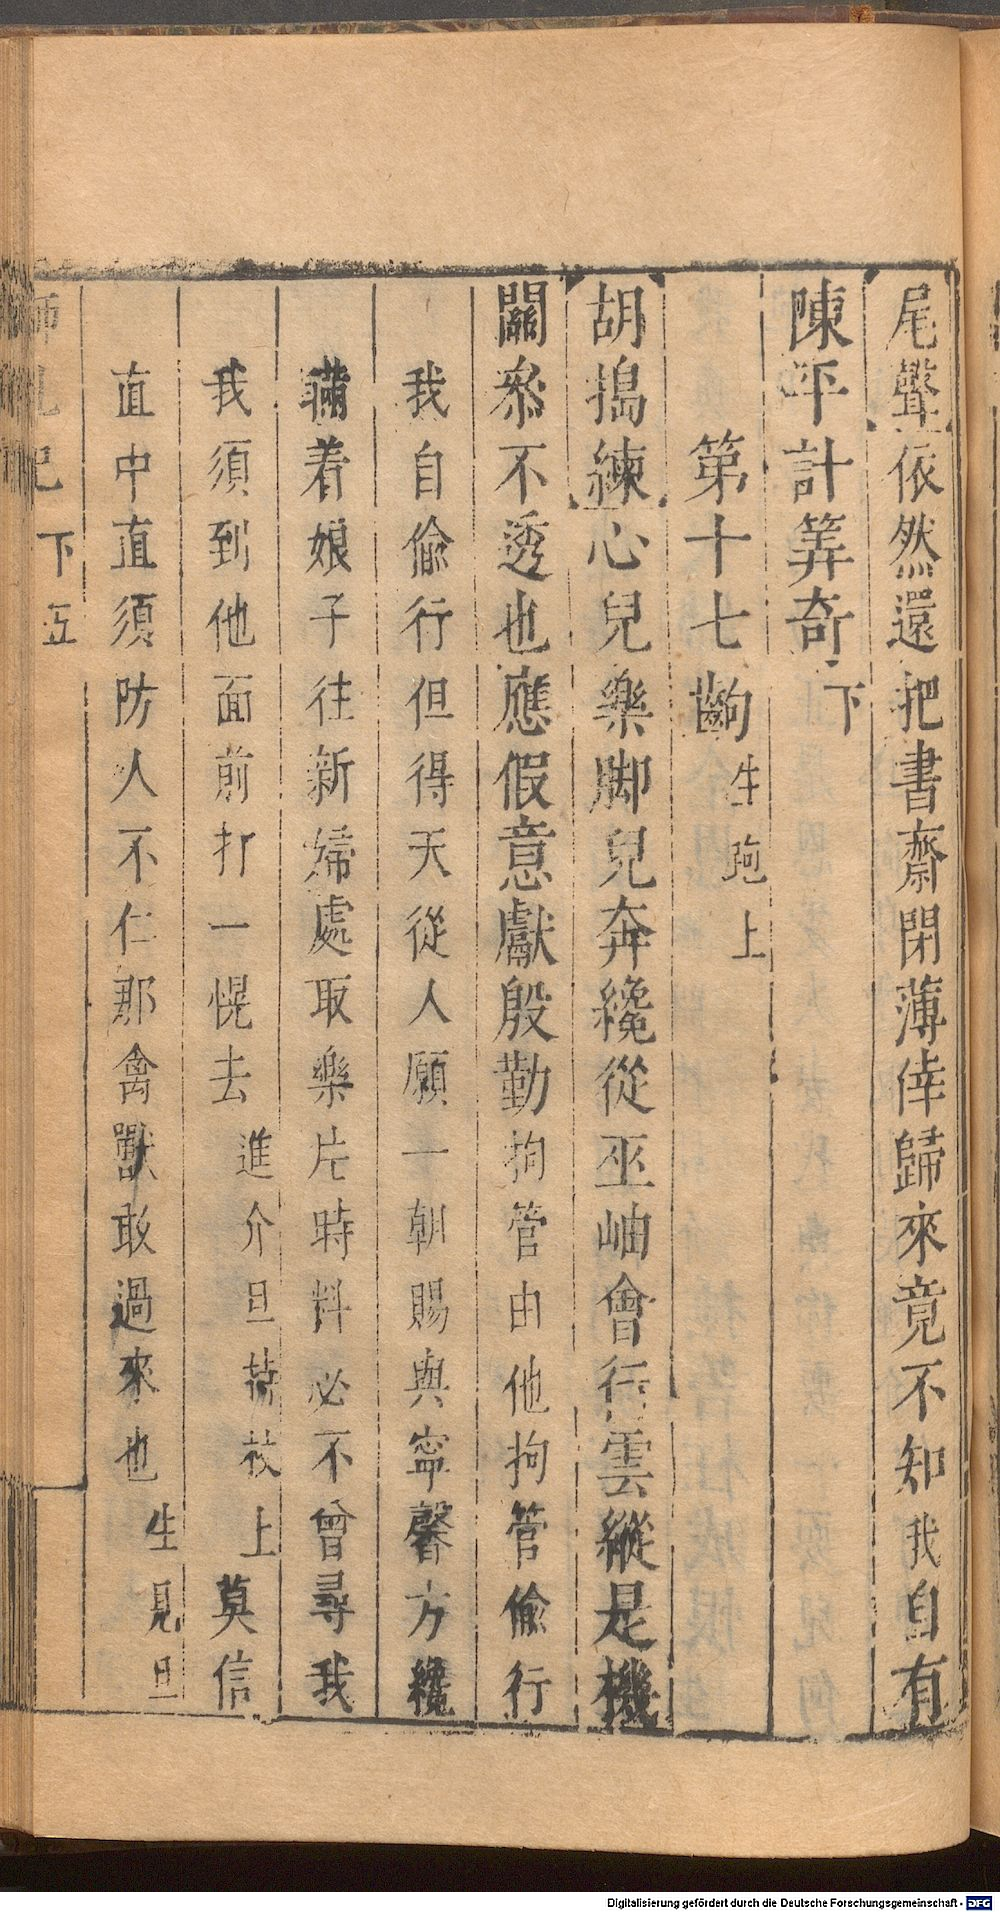 尾聲依然還把書齋閉薄倖歸來竟不知我自有
陳平計筭奇下
第十七齣生跑上
胡搗練心兒樂脚兒奔纔從巫岫會行雲縱是機
關叅不透也應假意獻殷勤拘管由他拘管偷行
我自偷行但得天從人願一朝賜與寧馨方纔
瞞着娘子往新婦處取樂片時料必不曾尋我
我須到他面前打一幌去進介旦持杖上莫信
直中直須防人不仁那禽獸敢過來也生見旦
獅吼記 下 五
Digitalisierung gefördert durch die Deutsche Forschungsgemeinschaft - DFG